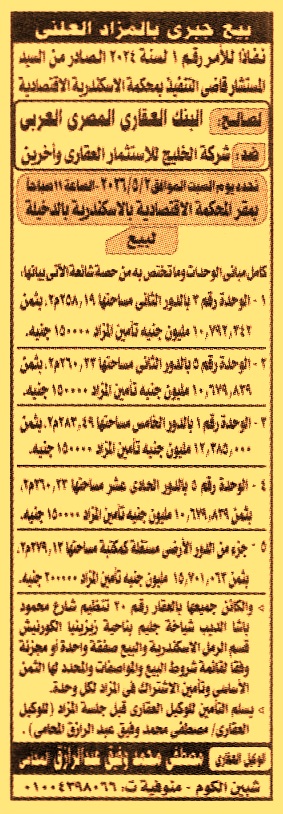 بيع جبرى بالمزاد العلنى
نفاذا للأمر رقم ١ لسنة ٢٠٢٤ الصادر من السيد
المستشار قاضى التنفيذ بمحكمة الاسكندرية الاقتصادية
لصالح: البنك العقارى المصرى العربى
ضد: شركة الخليج للاستثمار العقارى وآخرين
تحدد يوم السبت الموافق ٢٠٢٦/٥/٢ - الساعة ١١ صباحا
بمقر المحكمة الاقتصادية بالاسكندرية بالدخيلة
لبيع
كامل مبانى الوحدات وما تختص به من حصة شائعة الآتى بيانها:
١ - الوحدة رقم ٣ بالدور الثانى مساحتها ٢٥٨,١٩م٢، بثمن
١٠,٧٩٢,٣٤٢ مليون جنيه تأمين المزاد ١٥٠٠٠٠ جنيه.
٢ - الوحدة رقم ٥ بالدور الثانى مساحتها ٢٦٠,٢٣م٢، بثمن
١٠,٦٧٩,٨٣٩ مليون جنيه تأمين المزاد ١٥٠٠٠٠ جنيه.
٣ - الوحدة رقم ١ بالدور الخامس مساحتها ٢٨٣,٤٩م٢، بثمن
١٢,٢٨٥,٠٠٠ مليون جنيه تأمين المزاد ١٥٠٠٠٠ جنيه.
٤ - الوحدة رقم ٥ بالدور الحادى عشر مساحتها ٢٦٠,٢٣م٢،
بثمن ١٠,٦٧٩,٨٣٩ مليون جنيه تأمين المزاد ١٥٠٠٠٠ جنيه.
٥ - جزء من الدور الأرضى مستغلة كمكتبة مساحتها ٢٧٩,١٣م٢،
بثمن ١٥,٧٠١,٠٦٣ مليون جنيه تأمين المزاد ٢٠٠٠٠٠ جنيه.
والكائن جميعها بالعقار رقم ٢٠ تنظيم شارع محمود
باشا الديب شياخة جليم بناحية زيزينيا الكورنيش
قسم الرمل الاسكندرية والبيع صفقة واحدة أو مجزئة
وفقا لقائمة شروط البيع والمواصفات والمحدد لها الثمن
الأساسى وتأمين الاشتراك فى المزاد لكل وحدة.
يسلم التأمين للوكيل العقارى قبل جلسة المزاد (للوكيل
العقارى/ مصطفى محمد وفيق عبد الرازق المحامى).
الوكيل العقارى مصطفى محمد وفيق عبد الرازق المحامى
شبين الكوم - منوفية ت: ٠١٠٠٤٣٩٨٠٦٦